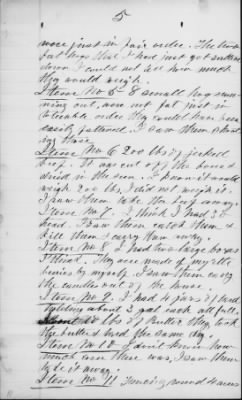 5
were just in fair order. The two
fat hogs that I had just got
down I could not tell how much
they would weigh.
Item No 5 - 8 small hogs running
out, were not fat just in
tolerable order they could have been
easily fattened. I saw them
those.
Item No 6 200 lbs of jerked
beef. It was cut off the bones &
dried in the sun. I know it would
weigh 200 lbs, I did not weigh it.
I saw them take the beef away.
Item No 7. I think I had 30
head. I saw them catch them &
kill them & carry them away.
Item No 8. I had two large boxes
I think. They are made of myrtle
berries by myself. I saw them carry
the candles out of the house.
Item No 9. I had 4 of lard
holding about 2 gal each all full.
lbs of Butter they took
the butter & lard the same day.
Item No 10 I don't know how
much corn there was, I saw them
it away.
Item No 11 Fencing round 4 acres